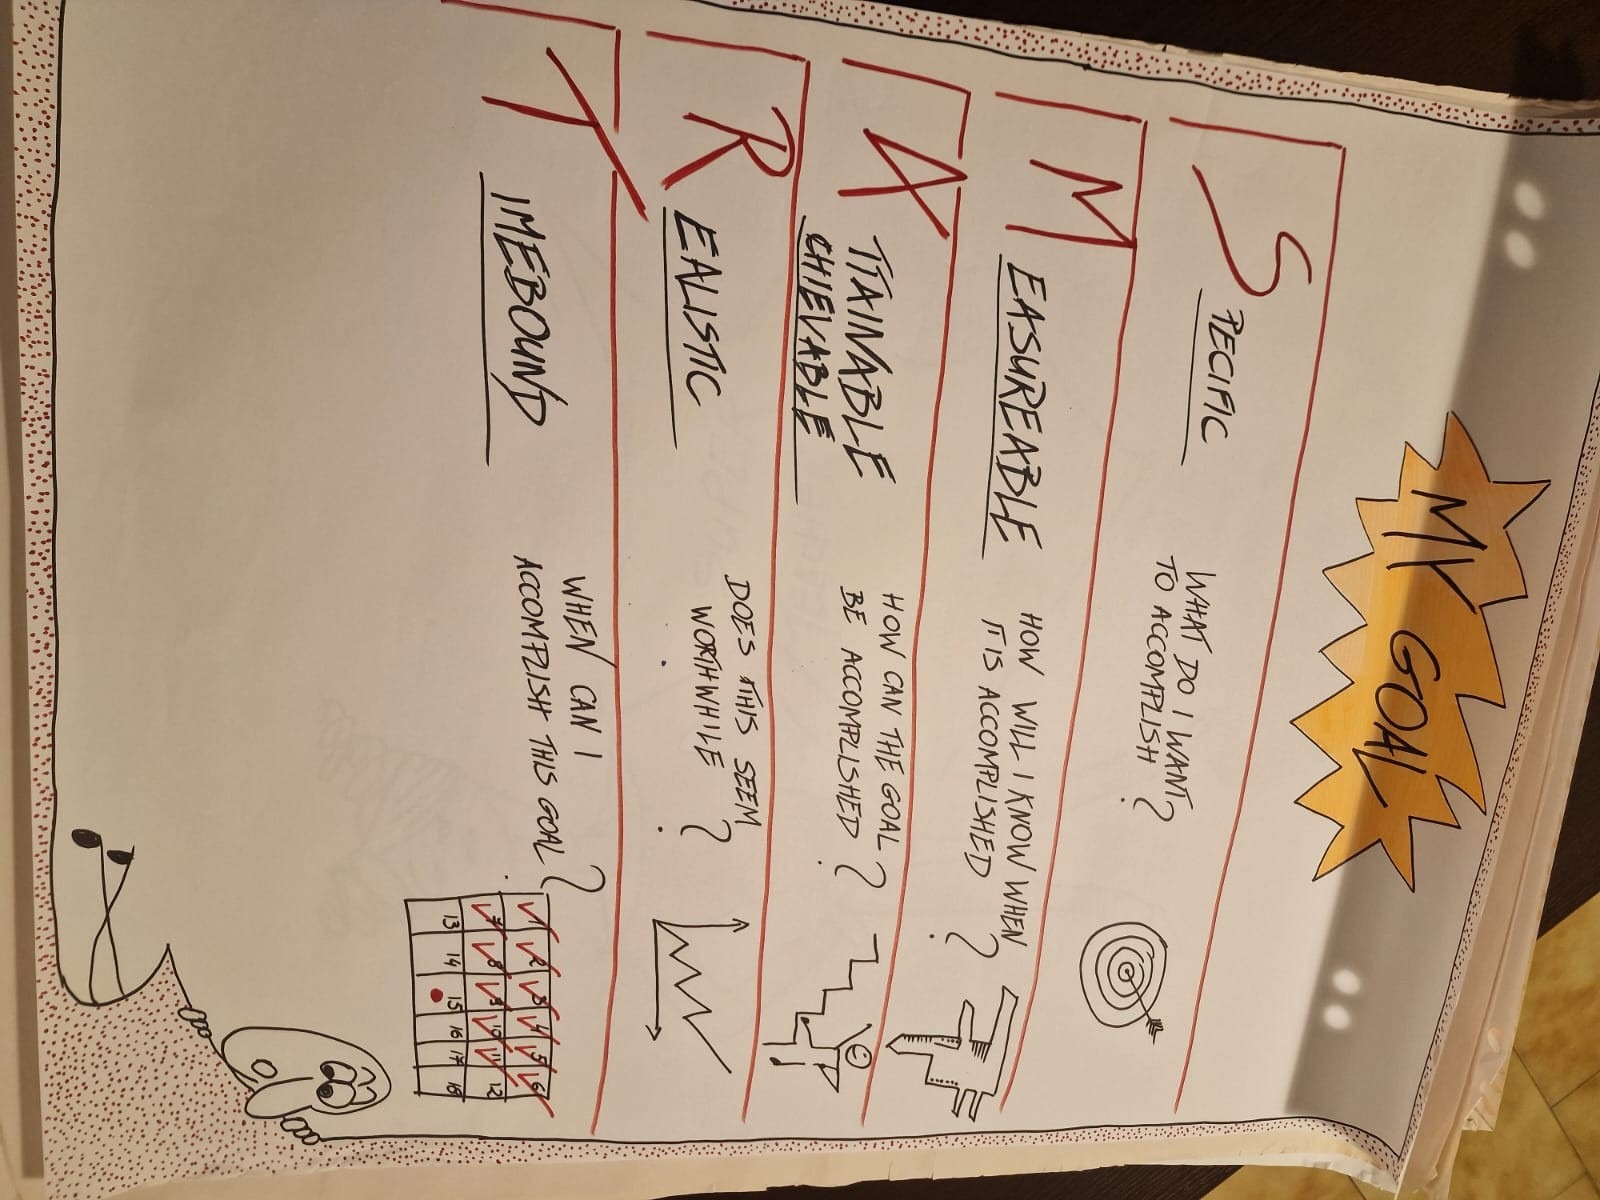 MY GOAL
SPECIFIC
WHAT DO I WANT
TO ACCOMPLISH?
MEASUREABLE
HOW WILL I KNOW WHEN
IT IS ACCOMPLISHED?
ATTAINABLE
CHIEVABLE
HOW CAN THE GOAL
BE ACCOMPLISHED?
REALISTIC
DOES THIS SEEM
WORTHWHILE?
TIMEBOUND
WHEN CAN I
ACCOMPLISH THIS GOAL?
1 2 3 4 5 6
7 8 9 10 11 12
13 14 15 16 17 18